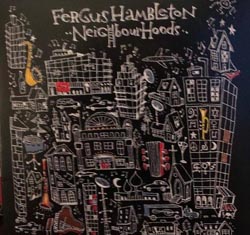 FERGUS HAMBLETON
NEIGHBOURHOODS